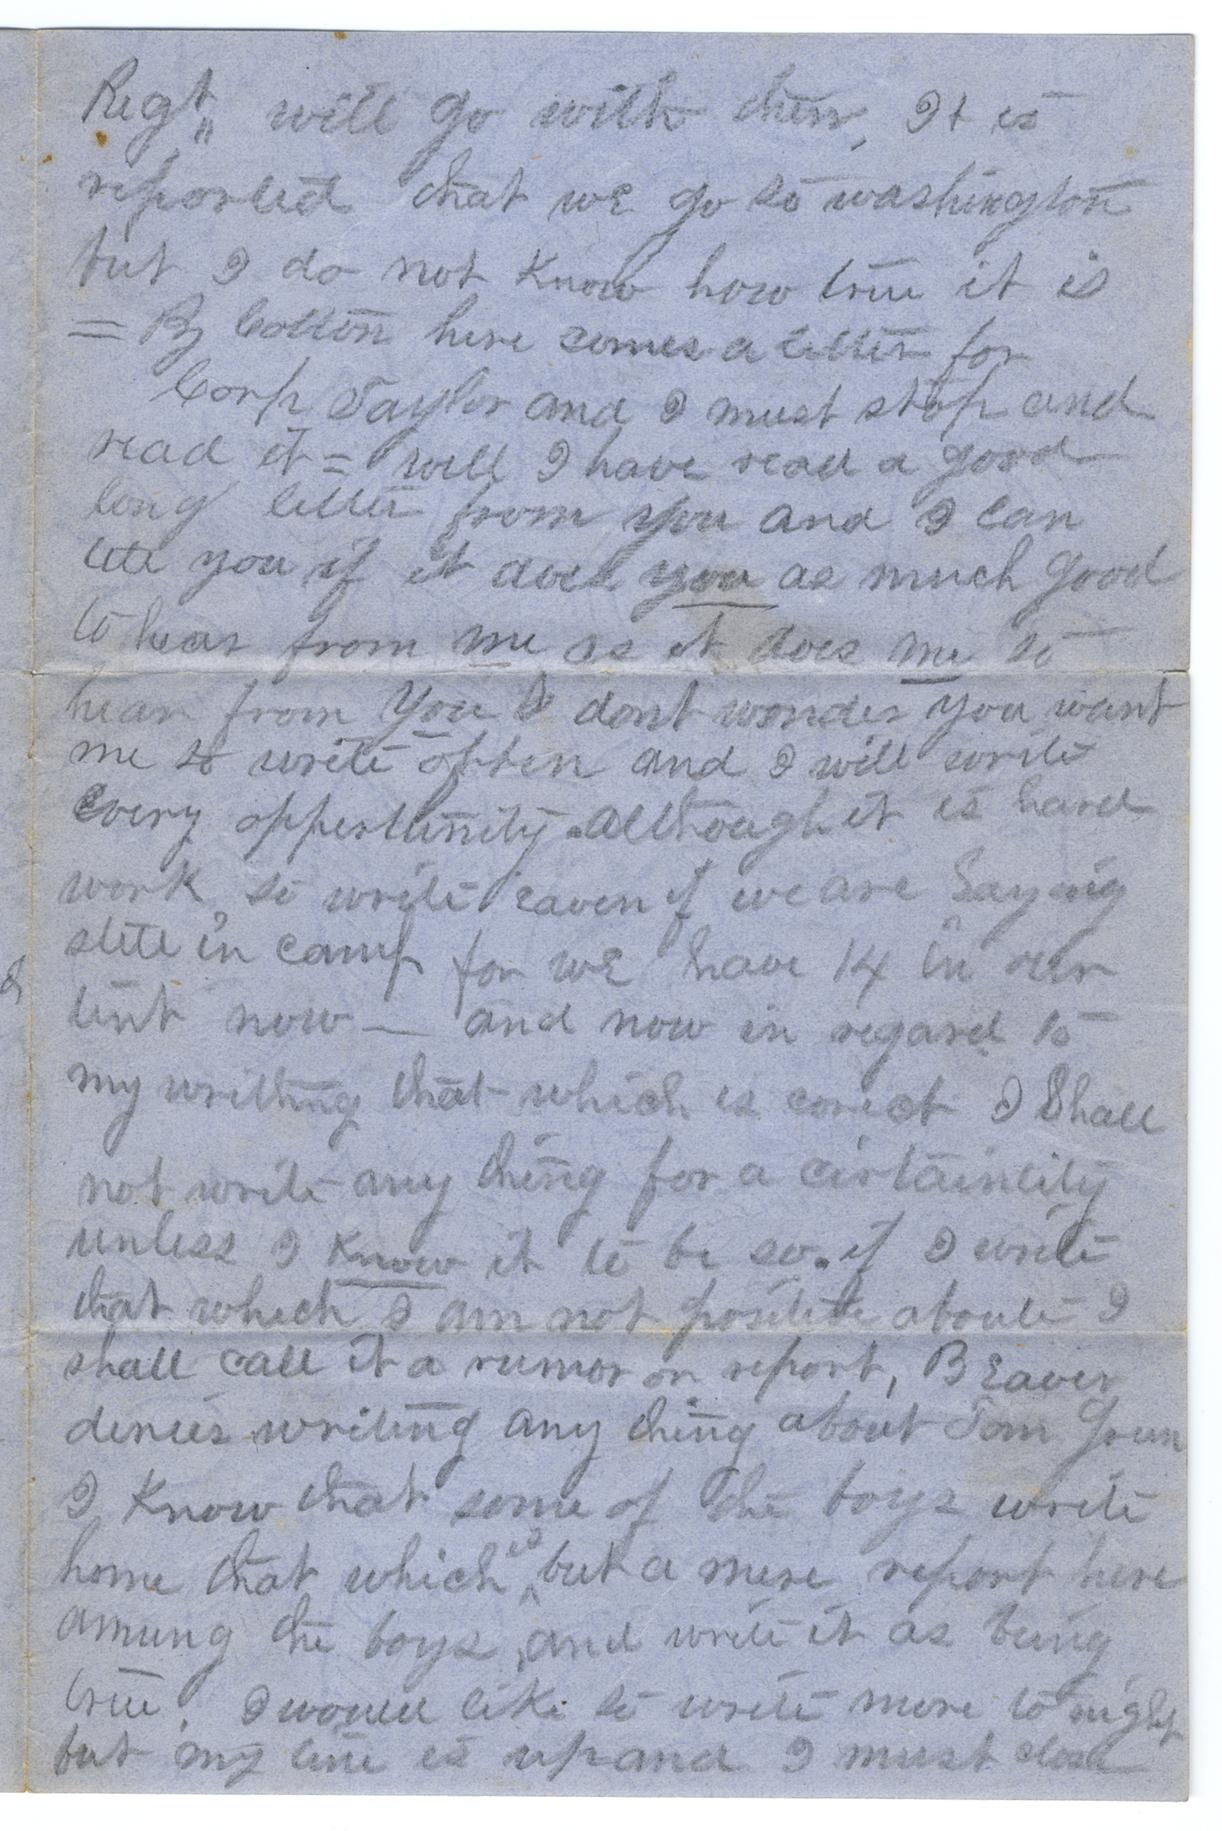 Regt,, will go with them, It is
reported that we go to washington
but I do not Know how true it is
= By Cotton here comes a letter for
Corp Taylor and I must stop and
read it = well I have read a good
long letter from you and I can
tell you if it does you as much good
to hear from me as it does me to
hear from you I dont wonder you want
me to write often and I will write
Every oppertunity although it is hard
work to write eaven if we are Laying
still in camp for we have 14 in our
tent now — and now in regard to
my writing that which is corect I Shall
not write any thing for a certainity
unless I Know it to be so. if I write
that which I am not positive about I
shall call it a rumor or report, BEaver
denies writing any thing about Tom Green
I Know that some of the boys write
home that which is but a mere report here
amung the boys, and write it as being
true. I would like to write more to night
but my time is up and I must close